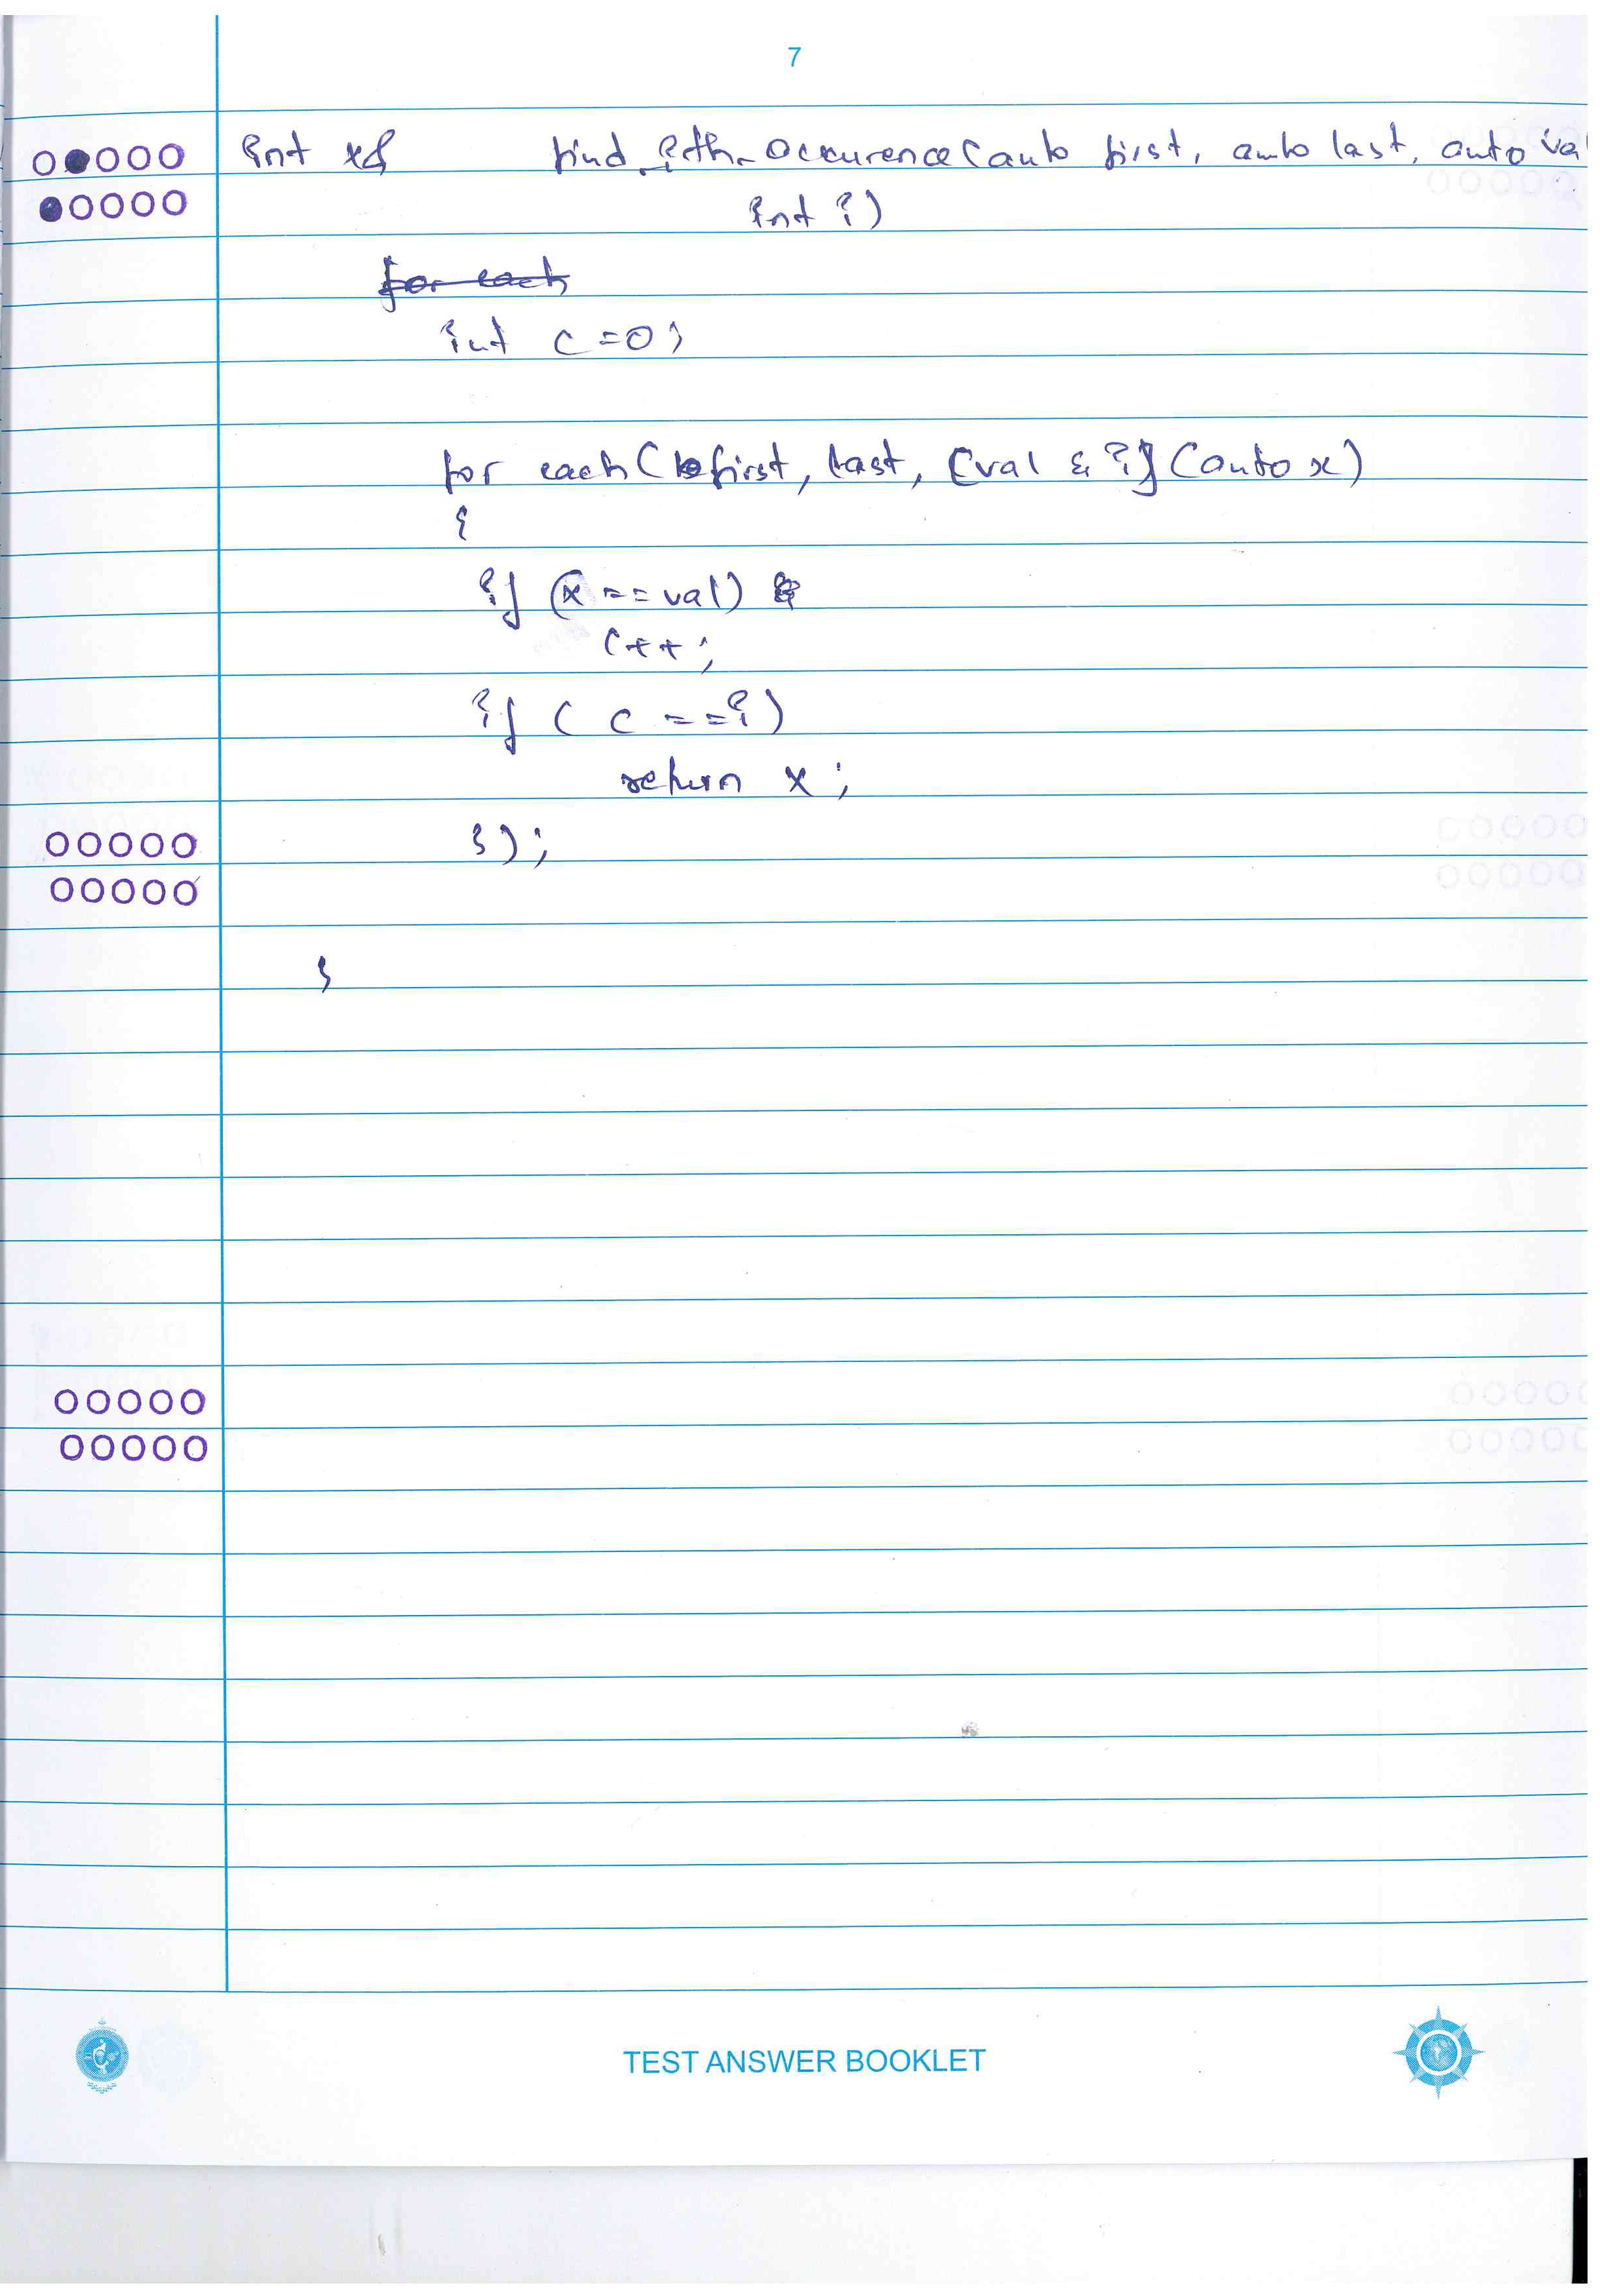 7
int x& find_ith_Occurence(auto first, auto last, auto va
int i)
for each
int c=0;
for each(first, last, [val & i](auto x)
{
if (x==val)
c++;
if ( c ==i)
return x;
});
}
TEST ANSWER BOOKLET